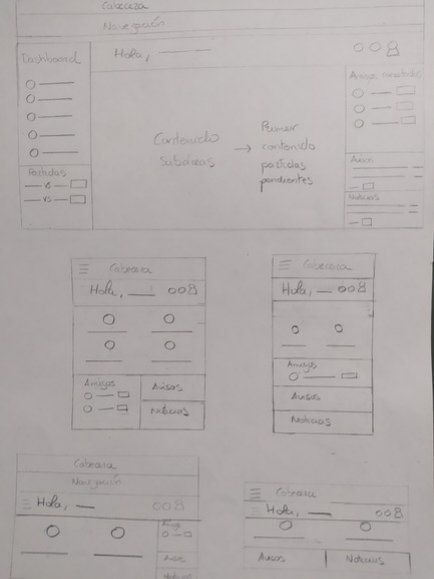 Cabeceza
Navegación
Dashboard
Hola,
Amigos conectados
Contenido
Subáreas
→ Primer
contenido
partidas
pendientes
Partidas
vs
vs
Avisos
Noticias
Cabecera
Hola,
Amigos
Avisos
Noticias
Cabecera
Hola,
Amigos
Avisos
Noticias
Cabecera
Navegación
Hola,
Avisos
Noticias
Cabecera
Hola,
Avisos
Noticias